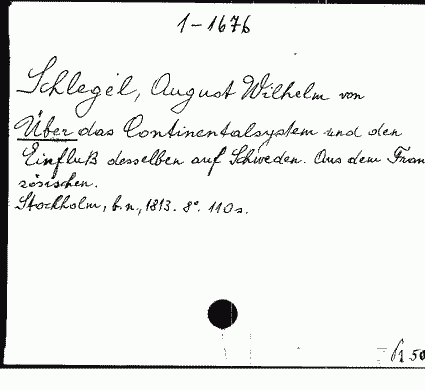 1-1676
Schlegel, August Wilhelm von
Über das Continentalsystem und den
Einfluß desselben auf Schweden. Aus dem Fran
zösischen.
Stockholm, b.n., 1813. 8°. 110 s.